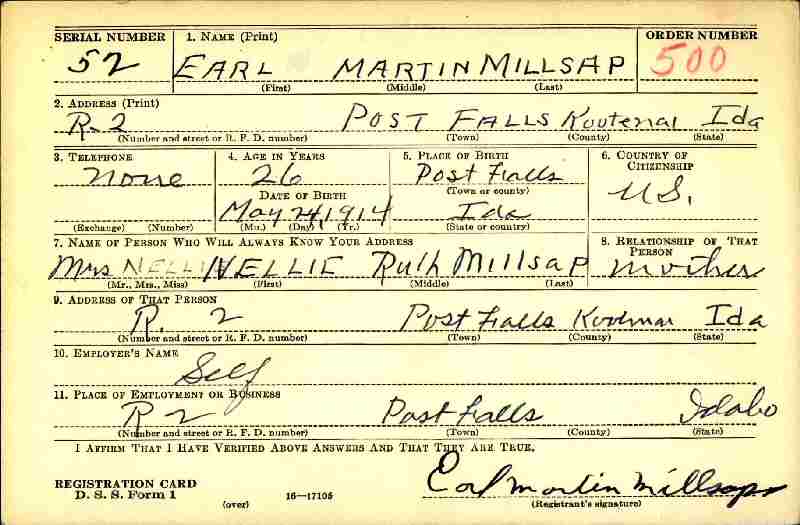 SERIAL NUMBER 1. NAME (Print) ORDER NUMBER
52 EARL MARTIN MILLSAP 500
(First) (Middle) (Last)
2. ADDRESS (Print)
R. 2 POST FALLS Kootenai Ida
(Number and street or R. F. D. number) (Town) (County) (State)
3. TELEPHONE 4. AGE IN YEARS 5. PLACE OF BIRTH 6. COUNTRY OF CITIZENSHIP
None 26 Post Falls U.S.
DATE OF BIRTH (Town or county)
May 24 1914 Ida
(Exchange) (Number) (Mo.) (Day) (Yr.) (State or country)
7. NAME OF PERSON WHO WILL ALWAYS KNOW YOUR ADDRESS 8. RELATIONSHIP OF THAT PERSON
Mrs NELLI NELLIE Ruth Millsap Mother
(Mr., Mrs., Miss) (First) (Middle) (Last)
9. ADDRESS OF THAT PERSON
R. 2 Post Falls Ida
(Number and street or R. F. D. number) (Town) (County) (State)
10. EMPLOYER'S NAME
Self
11. PLACE OF EMPLOYMENT OR BUSINESS
R 2 Post Falls Idaho
(Number and street or R. F. D. number) (Town) (County) (State)
I AFFIRM THAT I HAVE VERIFIED ABOVE ANSWERS AND THAT THEY ARE TRUE.
REGISTRATION CARD Earl Martin Millsap
D. S. S. Form 1 (over) 16—17105 (Registrant's signature)